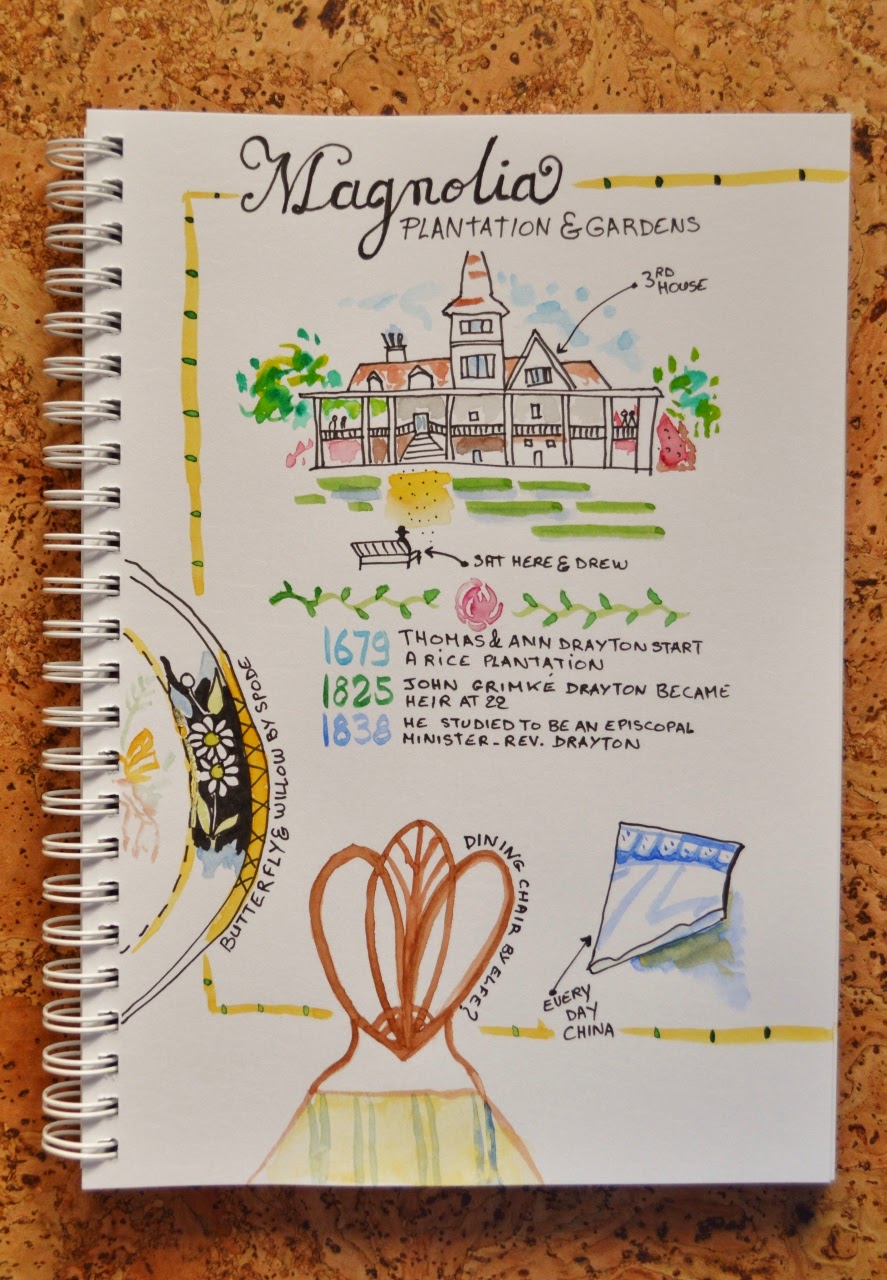 Magnolia
PLANTATION & GARDENS
3RD
HOUSE
SAT HERE & DREW
1679 THOMAS & ANN DRAYTON START
A RICE PLANTATION
1825 JOHN GRIMKÉ DRAYTON BECAME
HEIR AT 22
1838 HE STUDIED TO BE AN EPISCOPAL
MINISTER - REV. DRAYTON
BUTTERFLY & WILLOW BY SPODE
DINING CHAIR BY ELFE?
EVERY
DAY
CHINA